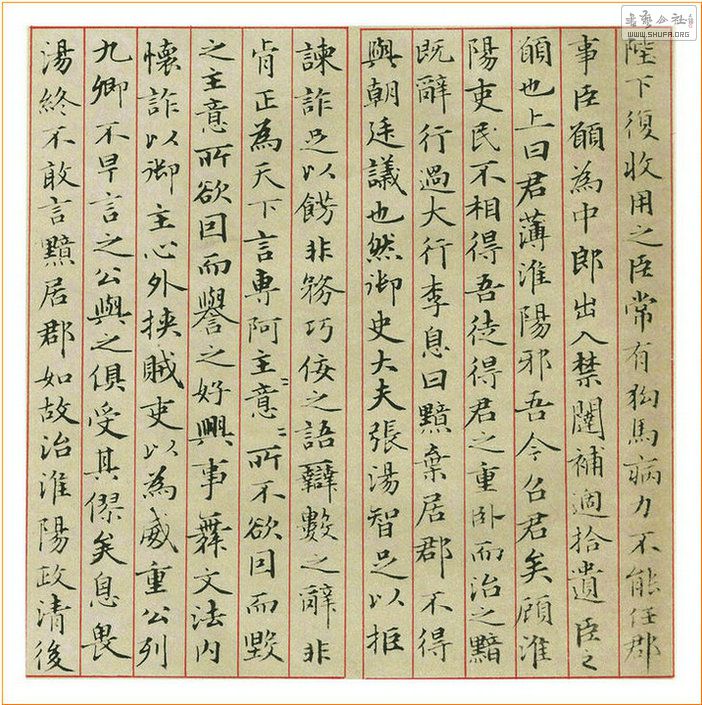 陛下復收用之臣常有狗馬病力不能任郡
事臣願為中郎出入禁闥補過拾遺臣之
願也上曰君薄淮陽邪吾今召君矣顧淮
陽吏民不相得吾徒得君之重臥而治之黯
既辭行過大行李息曰黯棄居郡不得
與朝廷議也然御史大夫張湯智足以拒
諫詐足以餝非務巧佞之語辯數之辭非
肯正為天下言專阿主意〻所不欲因而毀
之主意所欲因而譽之好興事舞文法內
懷詐以御主心外挾賊吏以為威重公列
九卿不早言之公與之俱受其僇矣息畏
湯終不敢言黯居郡如故治淮陽政清後
書藝公社
WWW.SHUFA.ORG